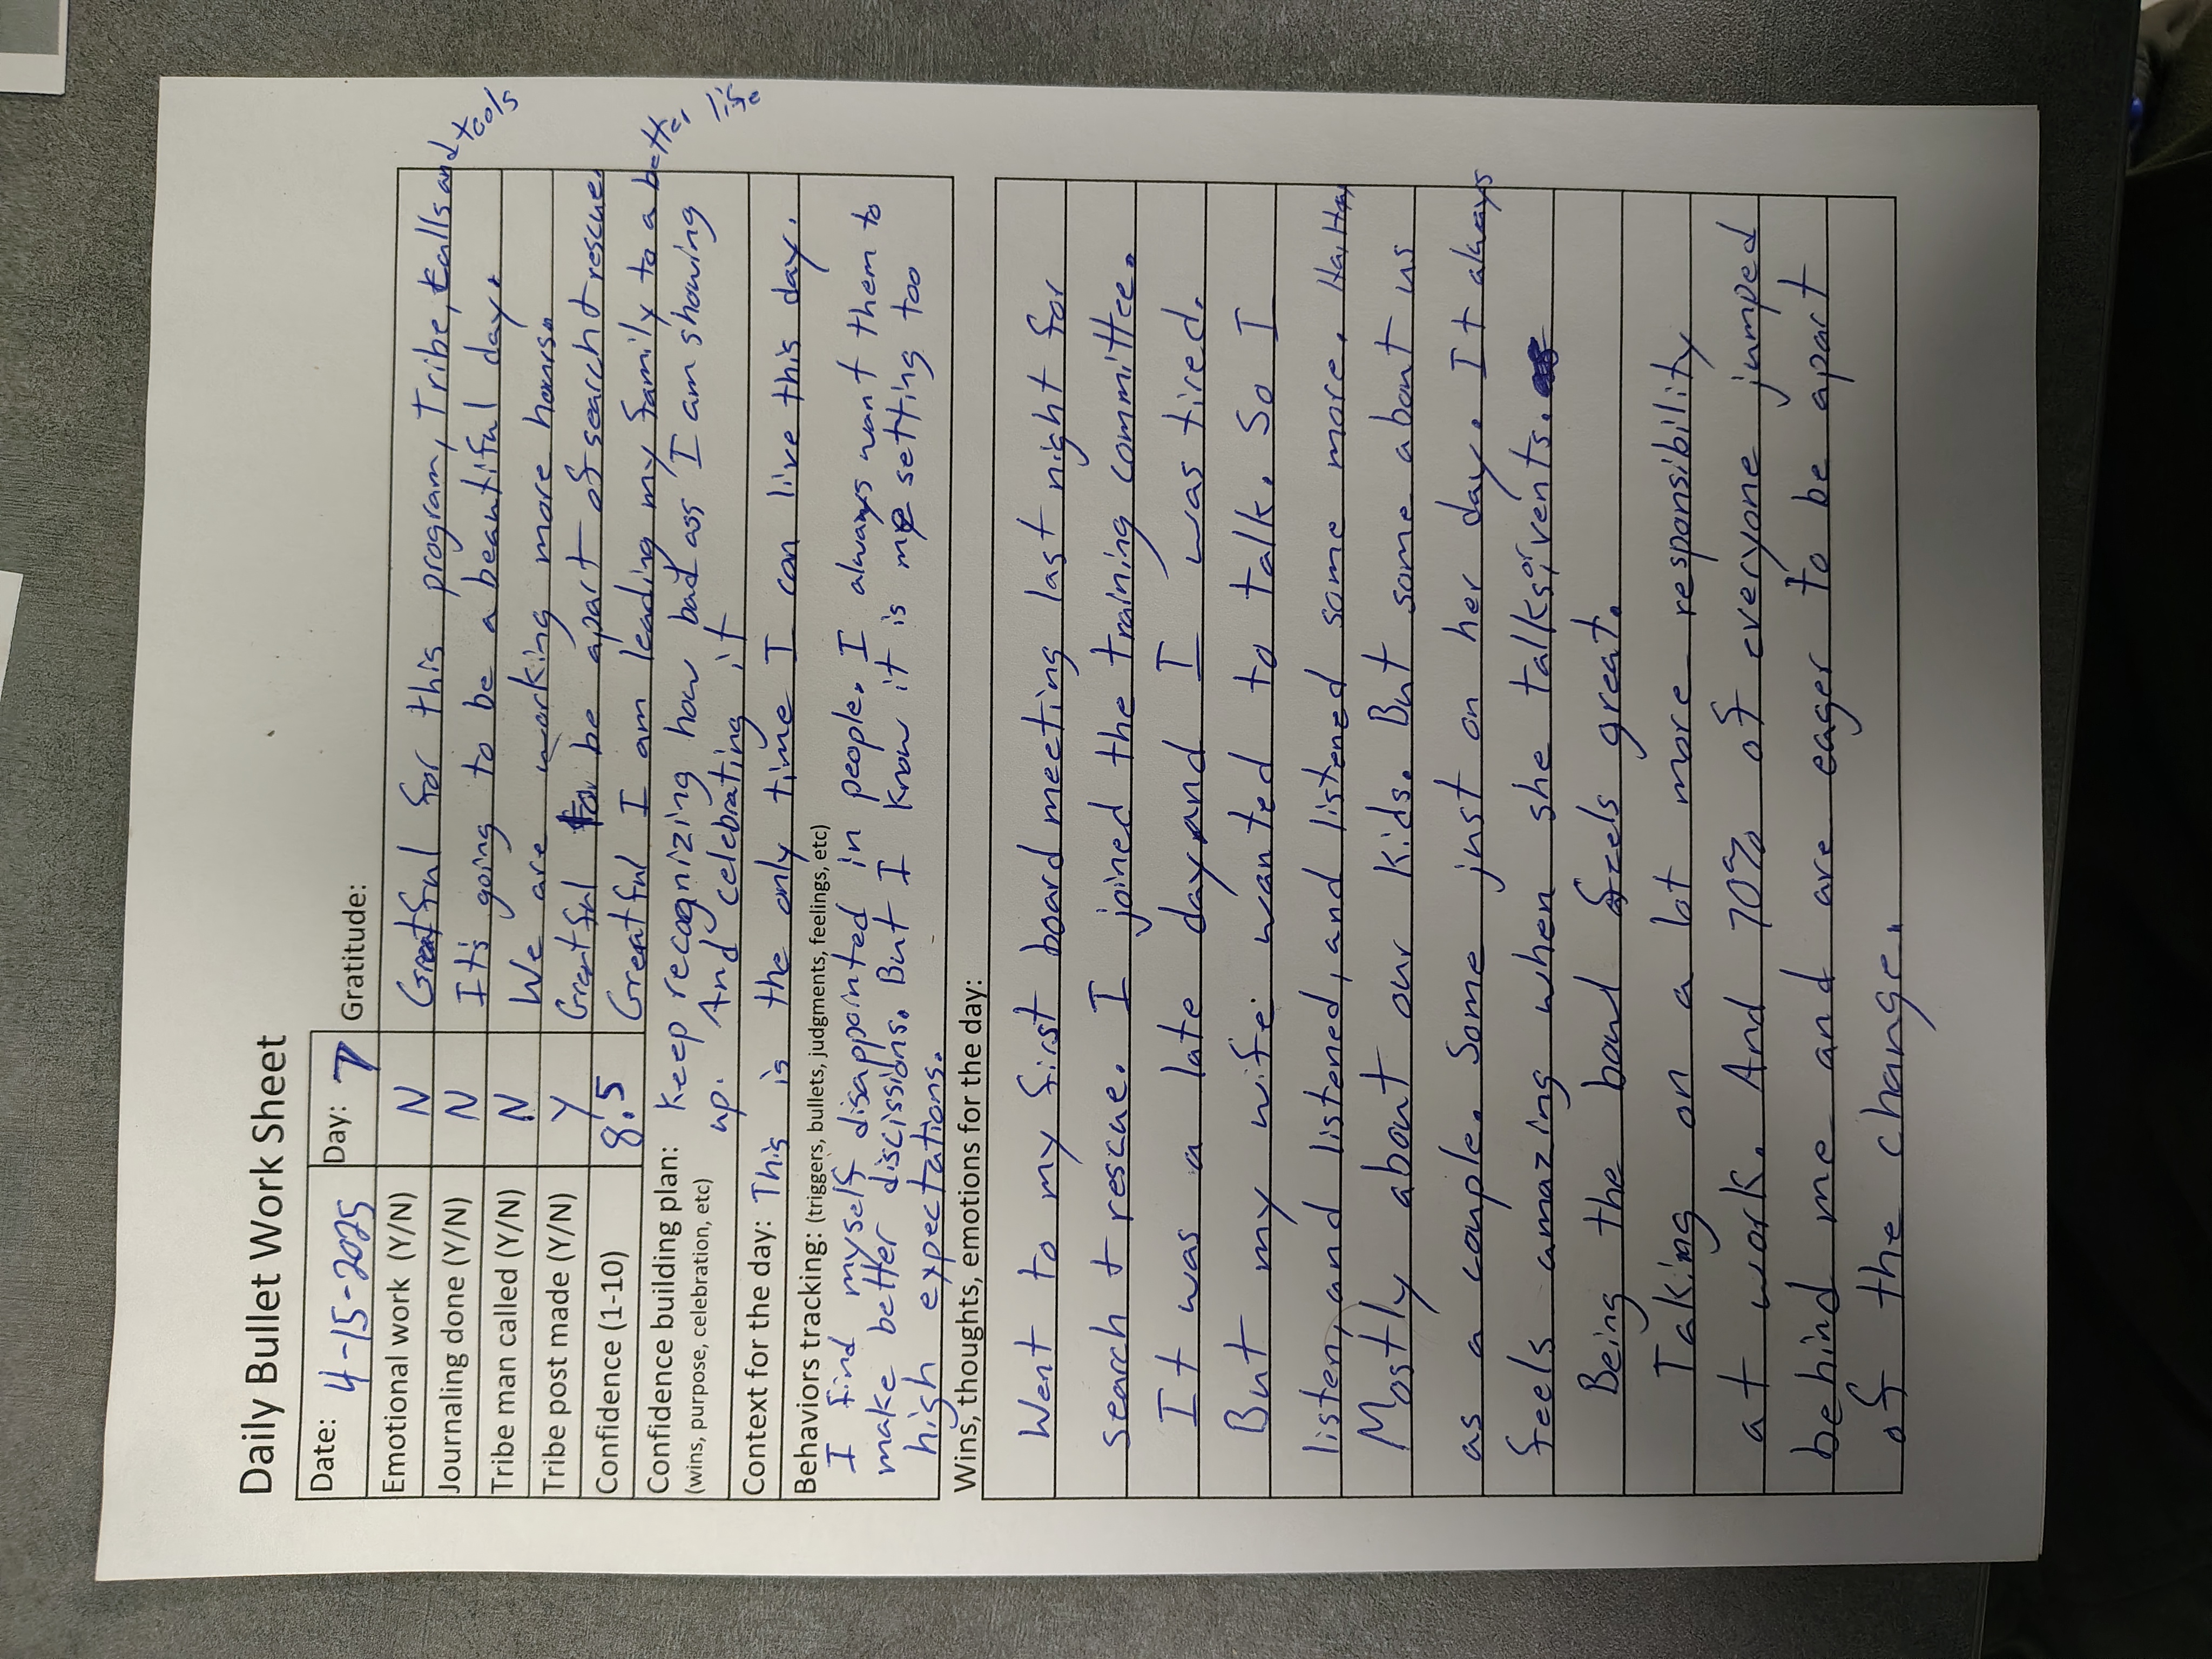 Daily Bullet Work Sheet
Date: 4-15-2025 Day: 7 Gratitude:
Emotional work (Y/N) N Greatful for this program, Tribe, calls and tools
Journaling done (Y/N) N It's going to be a beautiful day.
Tribe man called (Y/N) N We are working more hours.
Tribe post made (Y/N) Y Greatful to be apart of search + rescue.
Confidence (1-10) 8.5 Greatful I am leading my family to a better life
Confidence building plan: Keep recognizing how bad ass I am showing
(wins, purpose, celebration, etc) up. And celebrating it
Context for the day: This is the only time I can live this day.
Behaviors tracking: (triggers, bullets, judgments, feelings, etc)
I find myself disappointed in people. I always want them to
make better discissions. But I know it is me setting too
high expectations.
Wins, thoughts, emotions for the day:
Went to my first board meeting last night for
search + rescue. I joined the training committee.
It was a late day and I was tired.
But my wife wanted to talk. So I
listen, and listened, and listened some more. Haha
Mostly about our kids. But some about us
as a couple. Some just on her day. It always
feels amazing when she talks, or vents.
Being the boul feels great.
Taking on a lot more responsibility
at work. And 70% of everyone jumped
behind me and are eager to be apart
of the change.